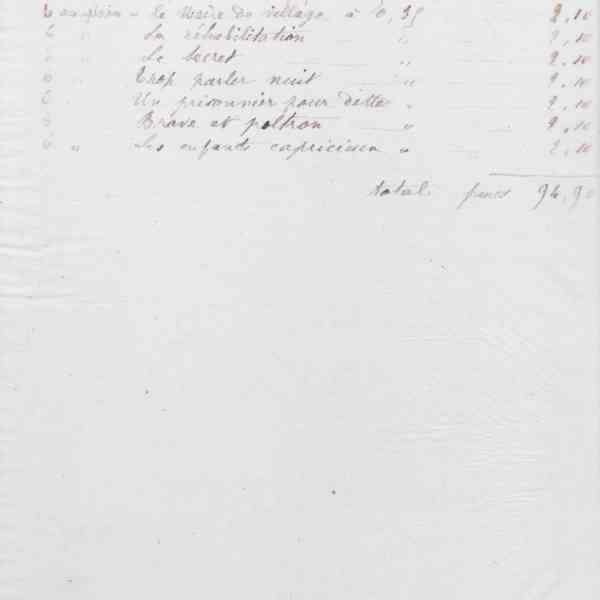 6 le Maire du village à 0,35 2.10
6 " La réhabilitation " 2.10
6 " Le Secret 2.10
6 " Trop parler nuit " 2.10
6 Un prisonnier pour dette " 2.10
6 Brave et poltron " 2.10
6 " Les enfants capricieux " 2.10
total francs 94,90